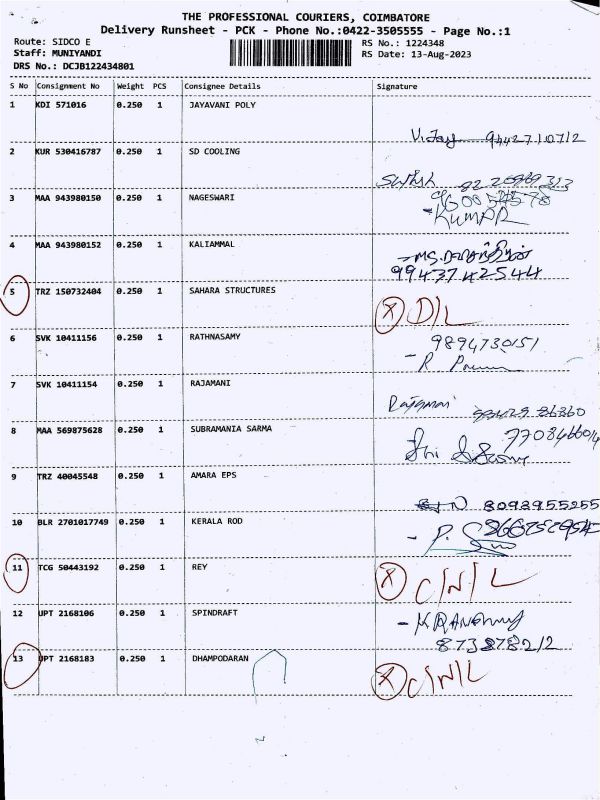 THE PROFESSIONAL COURIERS, COIMBATORE
Delivery Runsheet - PCK - Phone No.:0422-3505555 - Page No.:1
Route: SIDCO E
RS No.: 1224348
Staff: MUNIYANDI
RS Date: 13-Aug-2023
DRS No.: DCJB122434801
S No Consignment No Weight PCS Consignee Details Signature
1 KDI 571016 0.250 1 JAYAVANI POLY
9442710712
2 KUR 530416787 0.250 1 SD COOLING
3 MAA 943980150 0.250 1 NAGESWARI
- KUMAR
4 MAA 943980152 0.250 1 KALIAMMAL
9943742544
5 TRZ 150732404 0.250 1 SAHARA STRUCTURES
X D/L
6 SVK 10411156 0.250 1 RATHNASAMY 9894730151
7 SVK 10411154 0.250 1 RAJAMANI
Rajamani
8 MAA 569875628 0.250 1 SUBRAMANIA SARMA
9 TRZ 40045548 0.250 1 AMARA EPS
8098955255
10 BLR 2701017749 0.250 1 KERALA ROD
11 TCG 50443192 0.250 1 REY X C/N/L
12 UPT 2168106 0.250 1 SPINDRAFT
13 UPT 2168183 0.250 1 DHAMPODARAN
X C/N/L